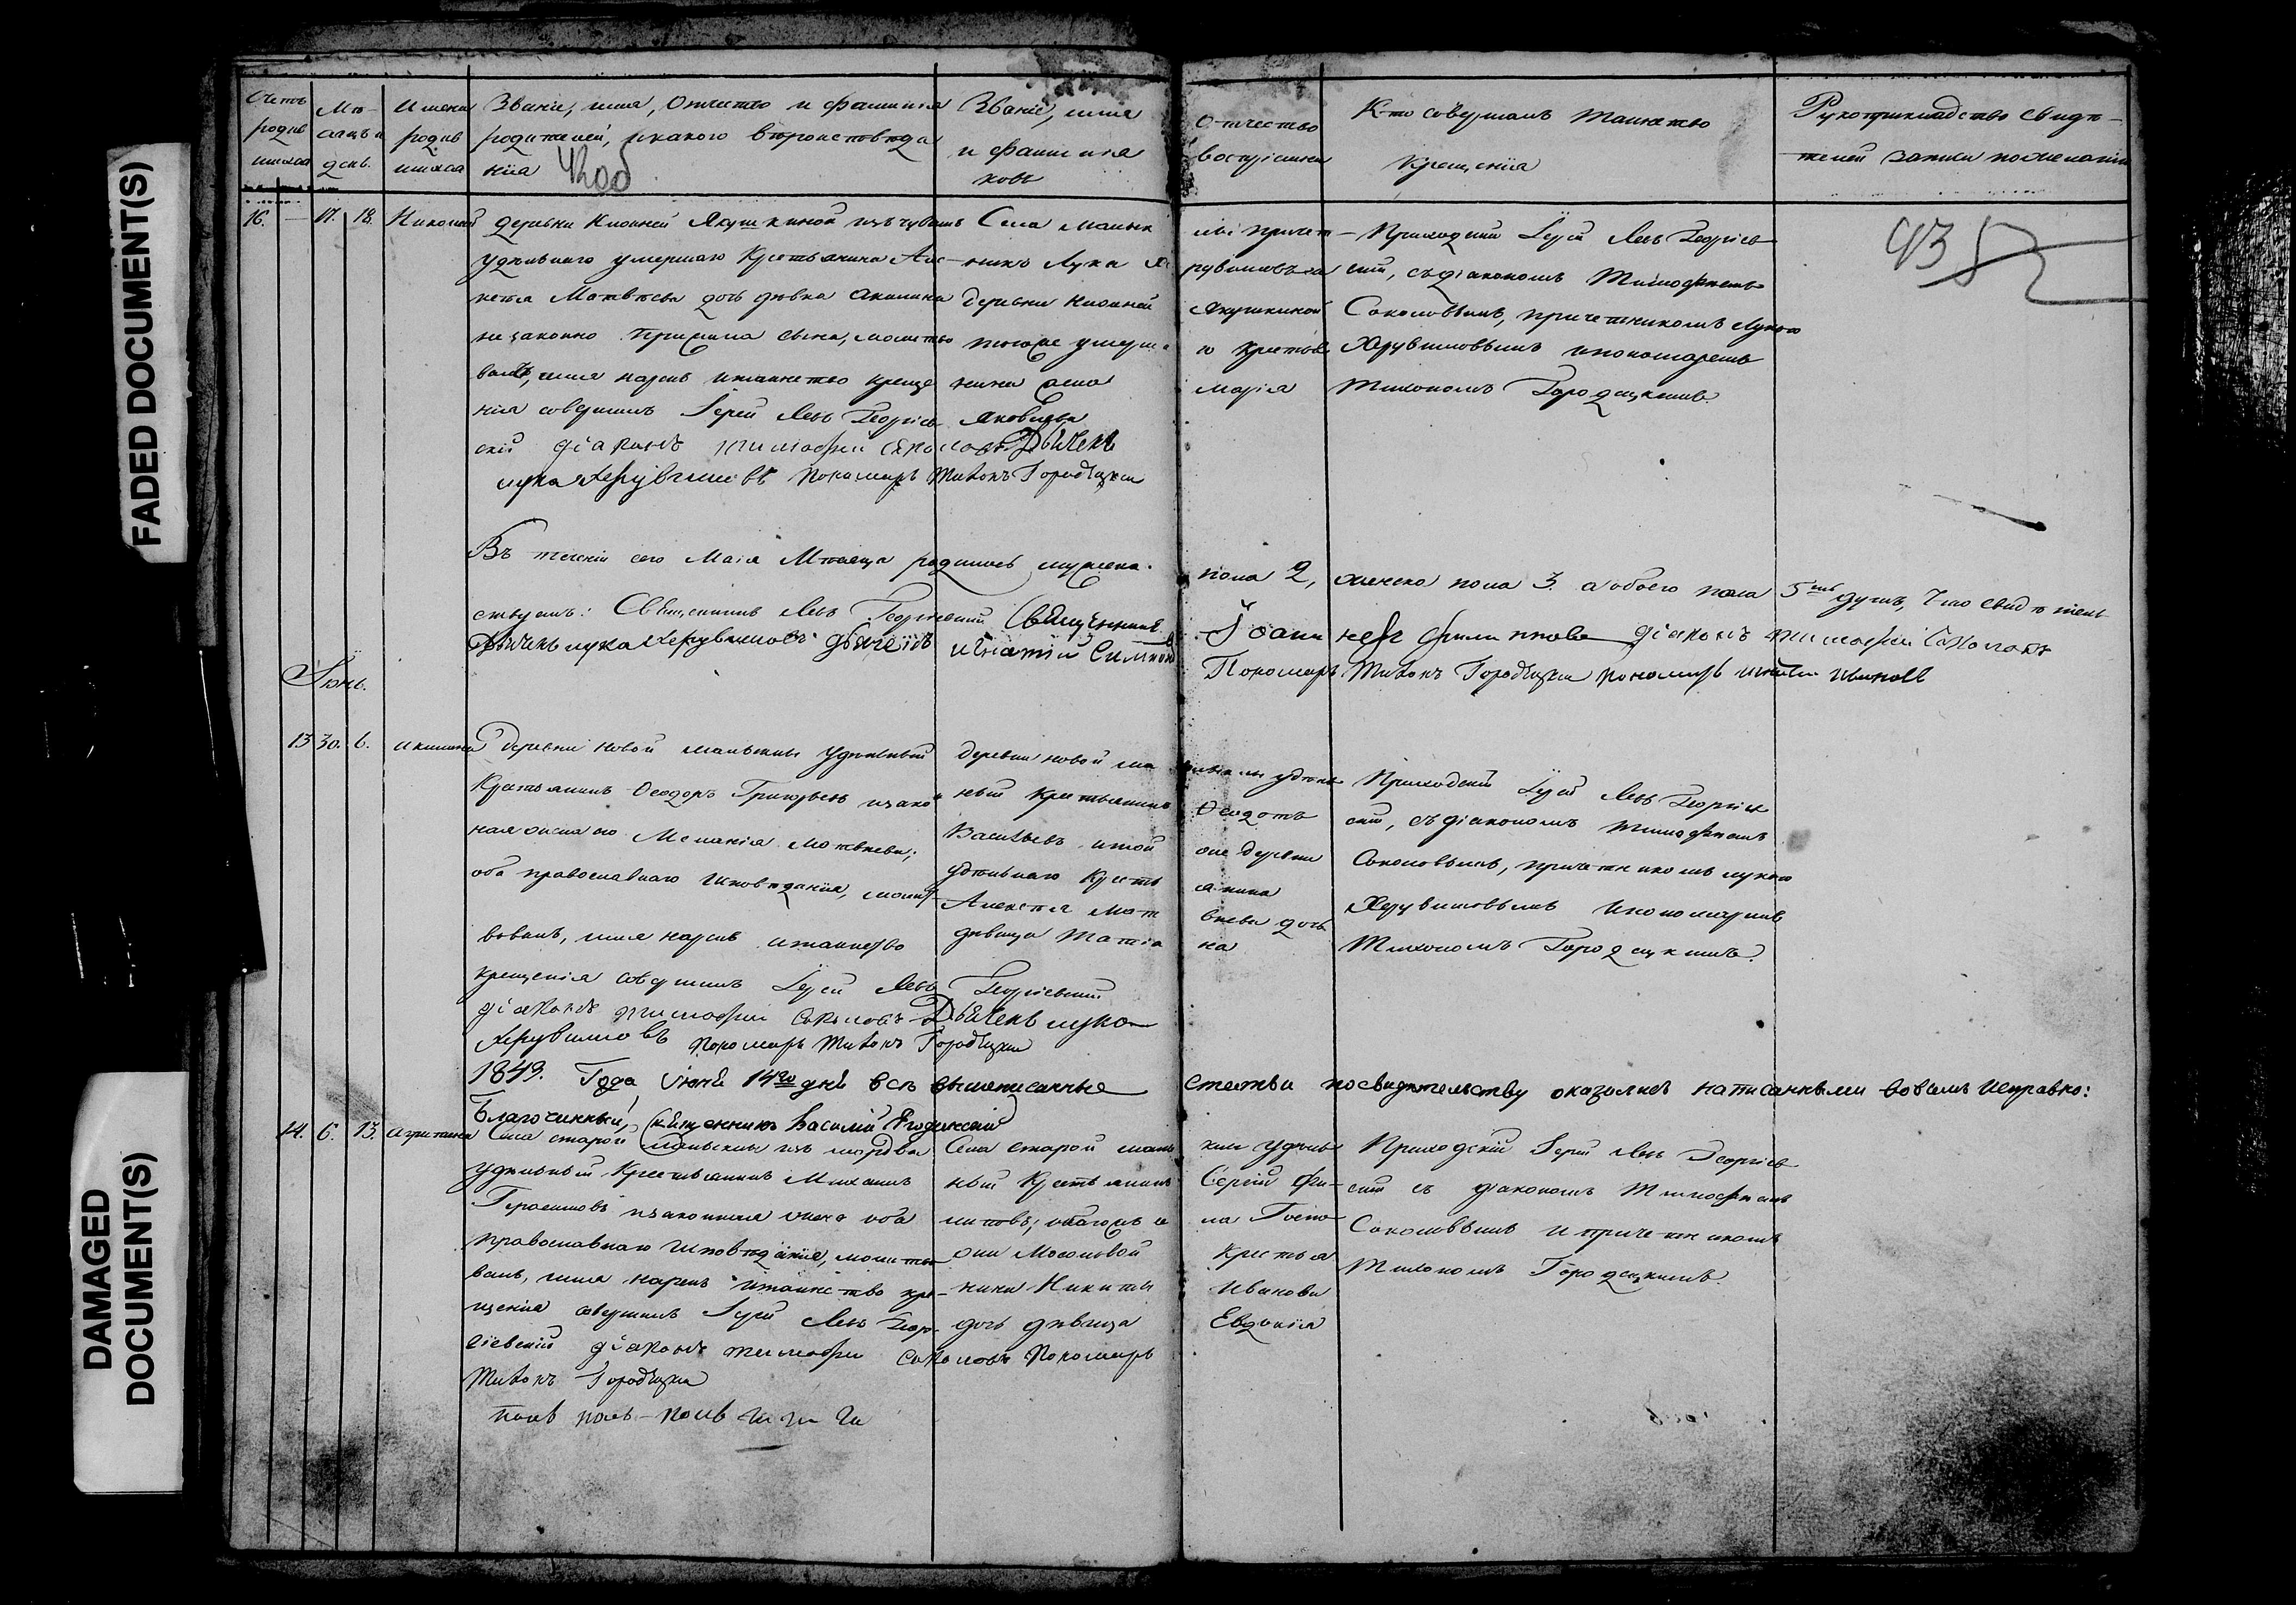 FADED DOCUMENT(S)
DAMAGED
DOCUMENT(S)
Счетъ родив шихся
Мѣ- сяцъ и день.
Имена родив шихся
Званіе, имя, отчество и фамилія
родителей, и какого вѣроисповѣда
нія
Званіе, имя
и фамилія
ковъ
отчество
воспріемни
Кто совершалъ таинство
крещенія
Рукоприкладство свидѣ-
телей записи по желанію
16. 17. 18. Николай
деревни Нижней Якушкиной изъ чувашъ
удѣльнаго умершаго Крестьянина Але-
ксѣя Матвѣева дочь дѣвка Акилина
незаконно прижила сына, молитво
валъ, имя нарекъ и таинство креще
нія совершилъ Іерей Левъ Георгіев
скій діаконъ тимофей Соколовъ Дьячекъ
лука Херувимовъ пономарь Тихонъ Городецкій
Села Малык
никъ Лука Хе
деревни Нижней
тогоже умерша
нина
Яковлева
лы причет
рувимовъ и
Якушкиной
го крестья
Марія
Приходскій Іерей Левъ Георгіев
скій, съ діакономъ Тимофеемъ
Соколовымъ, причетникомъ Лукою
Херувимовымъ и пономаремъ
Тихономъ Городецкимъ.
Въ теченіи сего Маія Мѣсяца родилось мужеска.
пола 2, женска пола 3. а обоего пола 5ть душъ, Что свидѣтель
ствуемъ: Священникъ Левъ Георгіевскій Священникъ
Іоаннъ Филиппова діаконъ тимофей Соколовъ
Дьячекъ лука Херувимовъ дьячекъ игнатій
Пономарь Тихонъ Городецкій пономарь Ивановъ
Іюнь.
13 30. 6. Акилина
деревни новой малыклы удѣльный
Крестьянинъ Ѳеодоръ Григорьевъ и закон
ная жена его Меланія Матвѣева;
оба православнаго исповѣданія, молит
вовалъ, имя нарекъ и таинство
крещенія совершилъ Іерей Левъ Георгіевскій
діаконъ тимофей Соколовъ Дьячекъ лука
Херувимовъ пономарь Тихонъ Городецкій
деревни новой ма
ный крестьянинъ
Васильевъ и той
удѣльнаго кресть
Алексѣя Мат
дѣвица Татiа
лыклы удѣль
Ѳеодотъ
же деревни
янина
вѣева дочь
на
Приходскій Іерей Левъ Георгіев
скій, съ діакономъ Тимофеемъ
Соколовымъ, причетникомъ лукою
Херувимовымъ и пономаремъ
Тихономъ Городецкимъ.
1849. Года Іюня 14го дня всѣ вышеписанные
статьи по свидѣтельству оказались написанными во всемъ исправно:
Благочинный, священникъ Василій Ягодинскій
14. 6. 13. Агрипина
Села старой Малыклы изъ мордвы
удѣльный Крестьянинъ Михаилъ
Герасимовъ и законная жена оба
православнаго исповѣданія, молитво
валъ, имя нарекъ и таинство кре-
щенія совершилъ Іерей Левъ Геор-
гіевскій діаконъ тимофей Соколовъ Пономарь
Тихонъ Городецкій
Села старой малы
ный Крестьянинъ
нины Никиты
дочь дѣвица
клы удѣль
Сергій Фи-
крестья
Иванова
Евдокія
Приходскій Іерей Левъ Георгіев
скій съ діакономъ Тимофеемъ
Соколовымъ и причетникомъ
Тихономъ Городецкимъ.